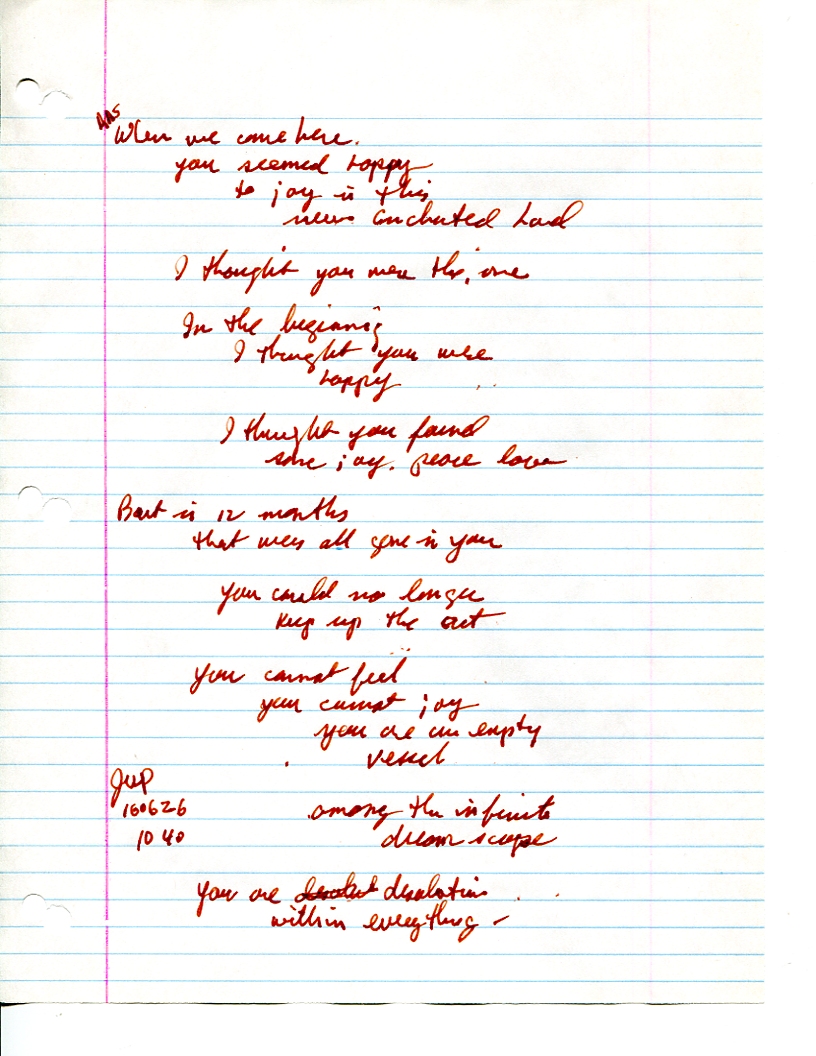 When we come here.
you seemed happy
to joy in this
new enchanted land
I thought you were the one
In the beginning
I thought you were
happy
I thought you found
some joy. peace love
But in 12 months
that was all gone in you
you could no longer
keep up the act
you cannot feel
you cannot joy
you are an empty
vessel
160626
among the infinite
1040
dream scape
you are desolation
within everything –